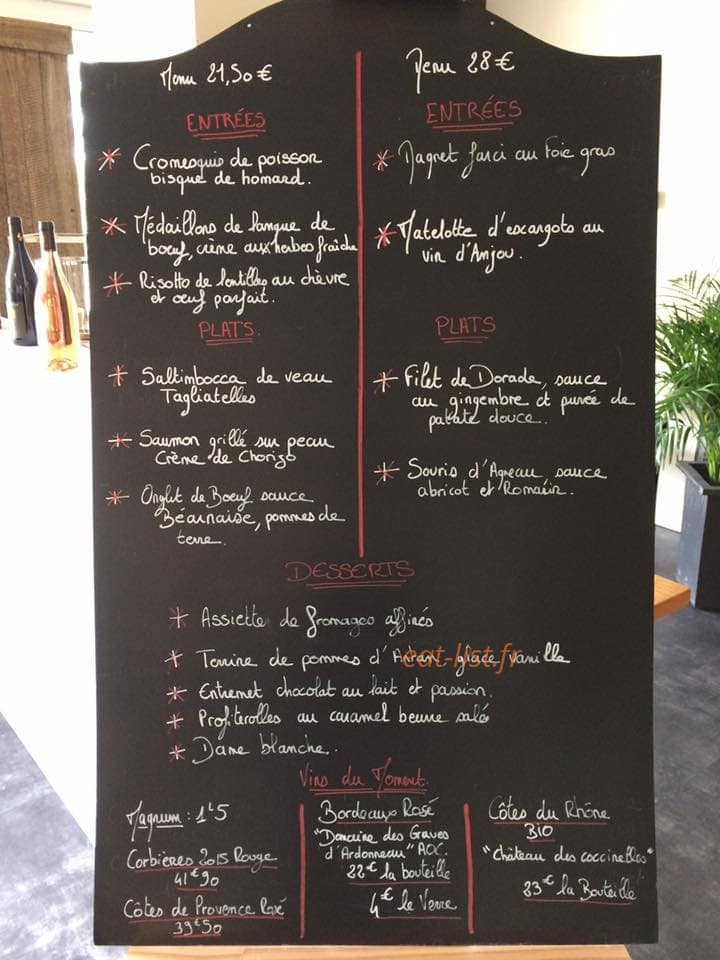 Menu 21,50 €
ENTRÉES
Cromesquis de poisson
bisque de homard.
Médaillons de langue de
boeuf, crème aux herbes fraîche
Risotto de lentilles au chèvre
et oeuf parfait.
PLATS.
Saltimbocca de veau
Tagliatelles
Saumon grillé sur peau
Crème de Chorizo
Onglet de Boeuf sauce
Béarnaise, pommes de
terre.
Menu 28 €
ENTRÉES
Magret farci au Foie gras
Matelotte d'escargots au
vin d'Anjou.
PLATS
Filet de Dorade, sauce
au gingembre et purée de
patate douce.
Souris d'Agneau sauce
abricot et Romarin.
DESSERTS
Assiette de fromages affinés
Terrine de pommes d'Antan glace vanille
eat-list.fr
Entremet chocolat au lait et passion.
Profiterolles au caramel beurre salé
Dame blanche.
Vins du Moment.
Magnum : 1L5
Corbières 2015 Rouge
41€90
Côtes de Provence Rosé
39€50
Bordeaux Rosé
"Domaine des Graves
d'Ardonneau" AOC.
22€ la bouteille
4€ le Verre
Côtes du Rhône
BIO
"Château des coccinelles"
23€ la Bouteille